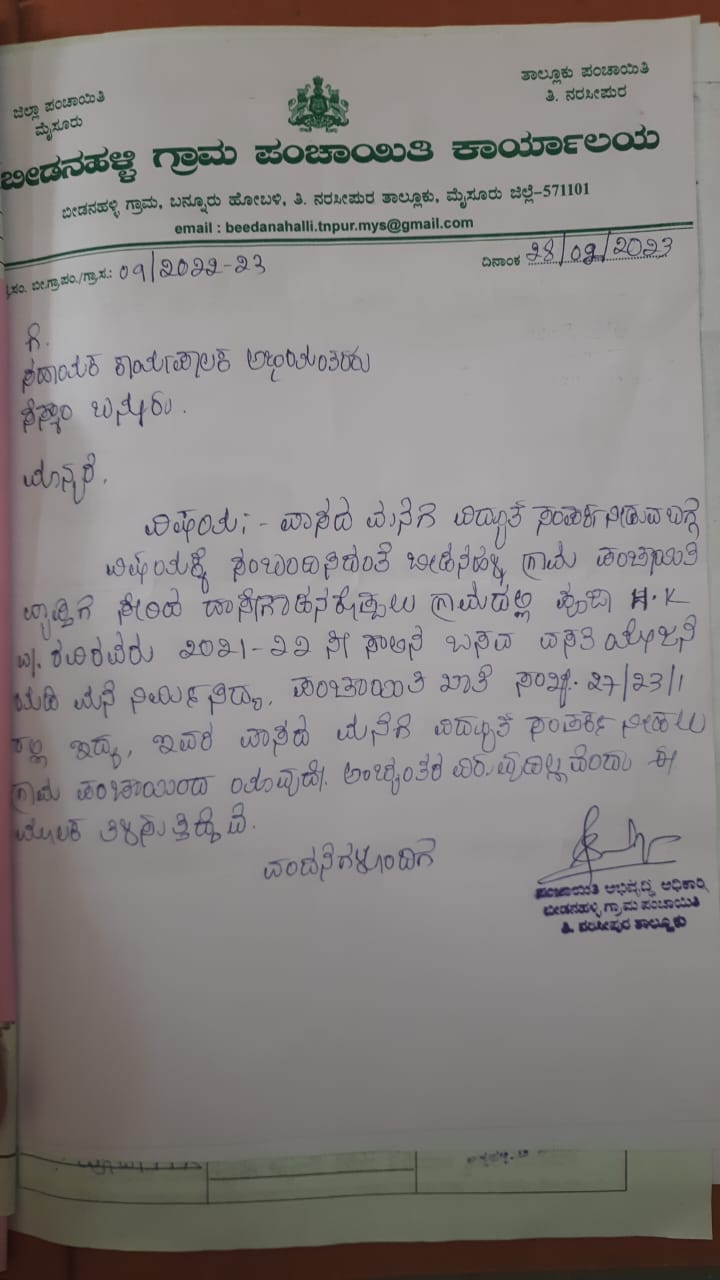 ಜಿಲ್ಲಾ ಪಂಚಾಯಿತಿ
ಮೈಸೂರು
ತಾಲ್ಲೂಕು ಪಂಚಾಯಿತಿ
ತಿ. ನರಸೀಪುರ
ಬೀಡನಹಳ್ಳಿ ಗ್ರಾಮ ಪಂಚಾಯಿತಿ ಕಾರ್ಯಾಲಯ
ಬೀಡನಹಳ್ಳಿ ಗ್ರಾಮ, ಬನ್ನೂರು ಹೋಬಳಿ, ತಿ. ನರಸೀಪುರ ತಾಲ್ಲೂಕು, ಮೈಸೂರು ಜಿಲ್ಲೆ-571101
email : beedanahalli.tnpur.mys@gmail.com
ಸಂ. ಬೀ.ಗ್ರಾ.ಪಂ./ಗ್ರಾ.ಸ.: 09/2022-23
ದಿನಾಂಕ 28/02/2023
ಗೆ.
ಸಹಾಯಕ ಕಾರ್ಯಪಾಲಕ ಅಭಿಯಂತರರು
ಸೆಸ್ಕಾಂ ಬನ್ನೂರು.
ಮಾನ್ಯರೆ,
ವಿಷಯ:- ವಾಸದ ಮನೆಗೆ ವಿದ್ಯುತ್ ಸಂಪರ್ಕ ನೀಡುವ ಬಗ್ಗೆ
ವಿಷಯಕ್ಕೆ ಸಂಬಂದಿಸಿದಂತೆ ಬೀಡನಹಳ್ಳಿ ಗ್ರಾಮ ಪಂಚಾಯಿತಿ
ವ್ಯಾಪ್ತಿಗೆ ಸೇರಿದ ಗ್ರಾಮದಲ್ಲಿ H.K
2021-22 ನೇ ಸಾಲಿನ ಬಸವ ವಸತಿ ಯೋಜನೆ
ಯಡಿ ಮನೆ ನಿರ್ಮಿಸಿದ್ದು, ಪಂಚಾಯಿತಿ ಖಾತೆ ಸಂಖ್ಯೆ. 27/23/1
ರಲ್ಲಿ ಇದ್ದು, ಇವರ ವಾಸದ ಮನೆಗೆ ವಿದ್ಯುತ್ ಸಂಪರ್ಕ ನೀಡಲು
ಗ್ರಾಮ ಪಂಚಾಯಿಂದ ಯಾವುದೇ ಅಭ್ಯಂತರ ವಿರುವುದಿಲ್ಲವೆಂದು ಈ
ಮೂಲಕ ತಿಳಿಸುತ್ತಿದ್ದೇವೆ.
ವಂದನೆಗಳೊಂದಿಗೆ
ಪಂಚಾಯಿತಿ ಅಭಿವೃದ್ಧಿ ಅಧಿಕಾರಿ
ಬೀಡನಹಳ್ಳಿ ಗ್ರಾಮ ಪಂಚಾಯಿತಿ
ತಿ. ನರಸೀಪುರ ತಾಲ್ಲೂಕು